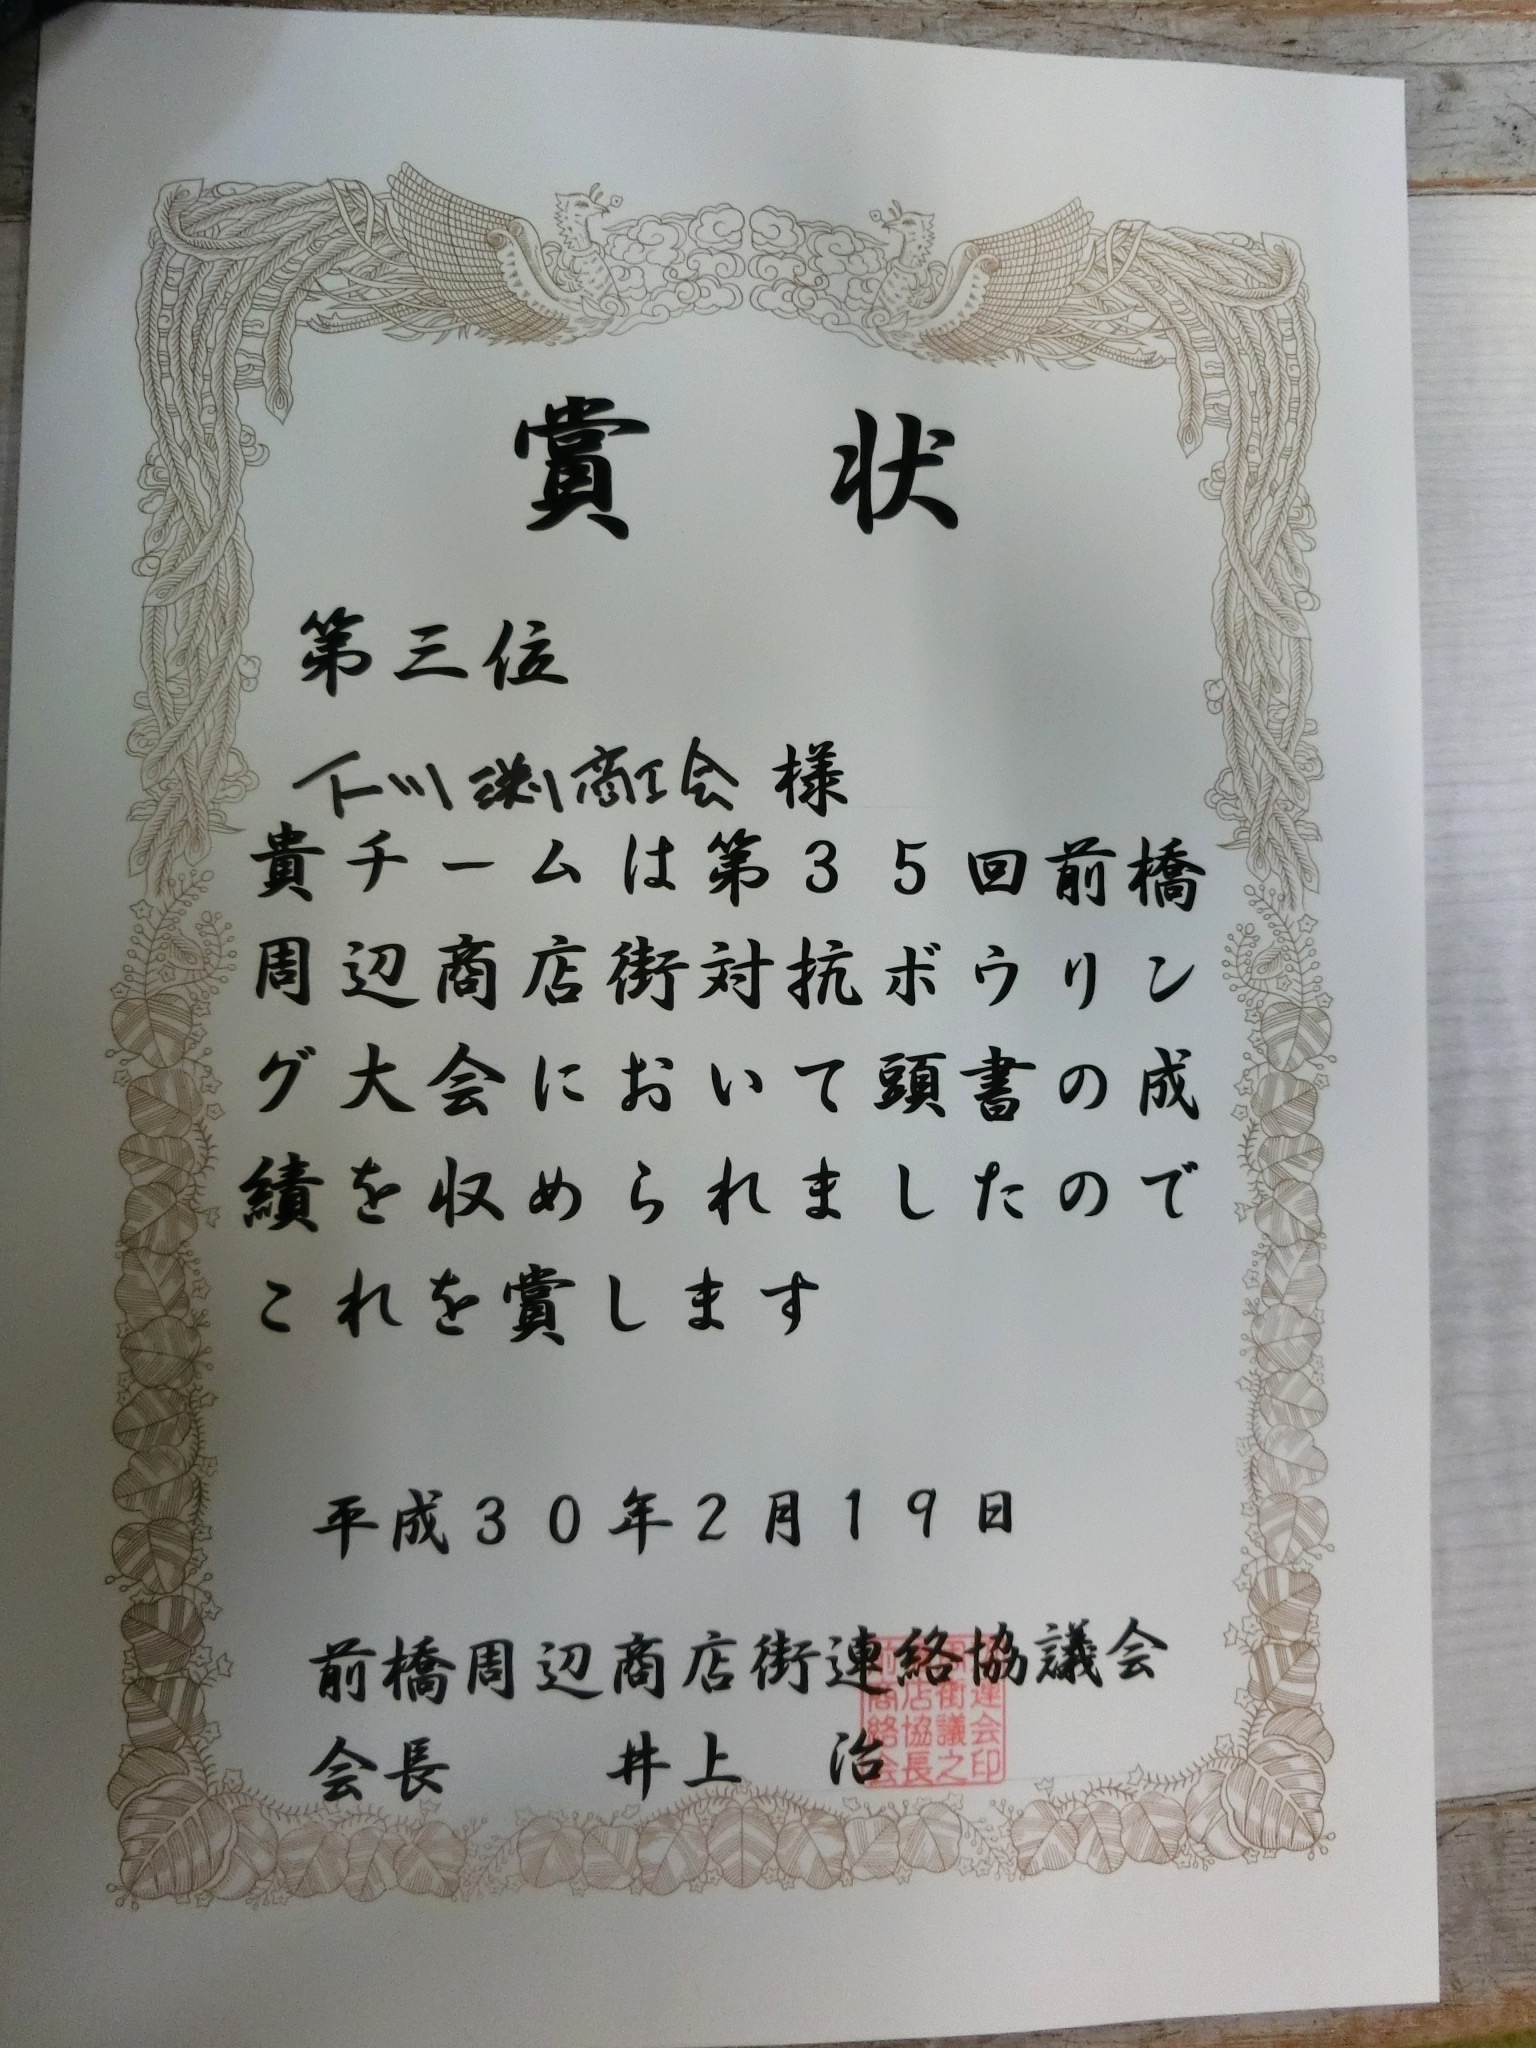 賞状
第三位
下川渕商工会 様
貴チームは第35回前橋
周辺商店街対抗ボウリン
グ大会において頭書の成
績を収められましたので
これを賞します
平成30年2月19日
前橋周辺商店街連絡協議会
会長 井上 治
商店街連
絡協議会
会長之印